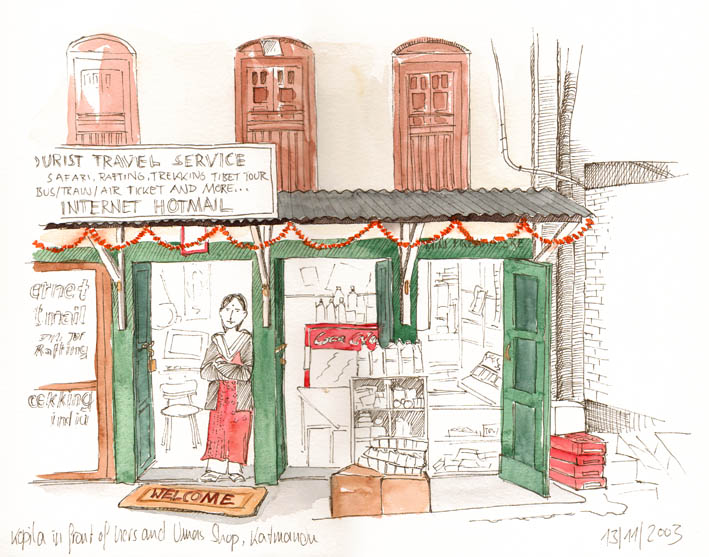 OURIST TRAVEL SERVICE
SAFARI, RAFTING, TREKKING TIBET TOUR
BUS/TRAIN/AIR TICKET AND MORE...
INTERNET HOTMAIL
ernet
tmail
Rafting
eekking
india
Coca Co
WELCOME
Kopila in front of hers and Umas Shop, Katmandu
13/11/2003